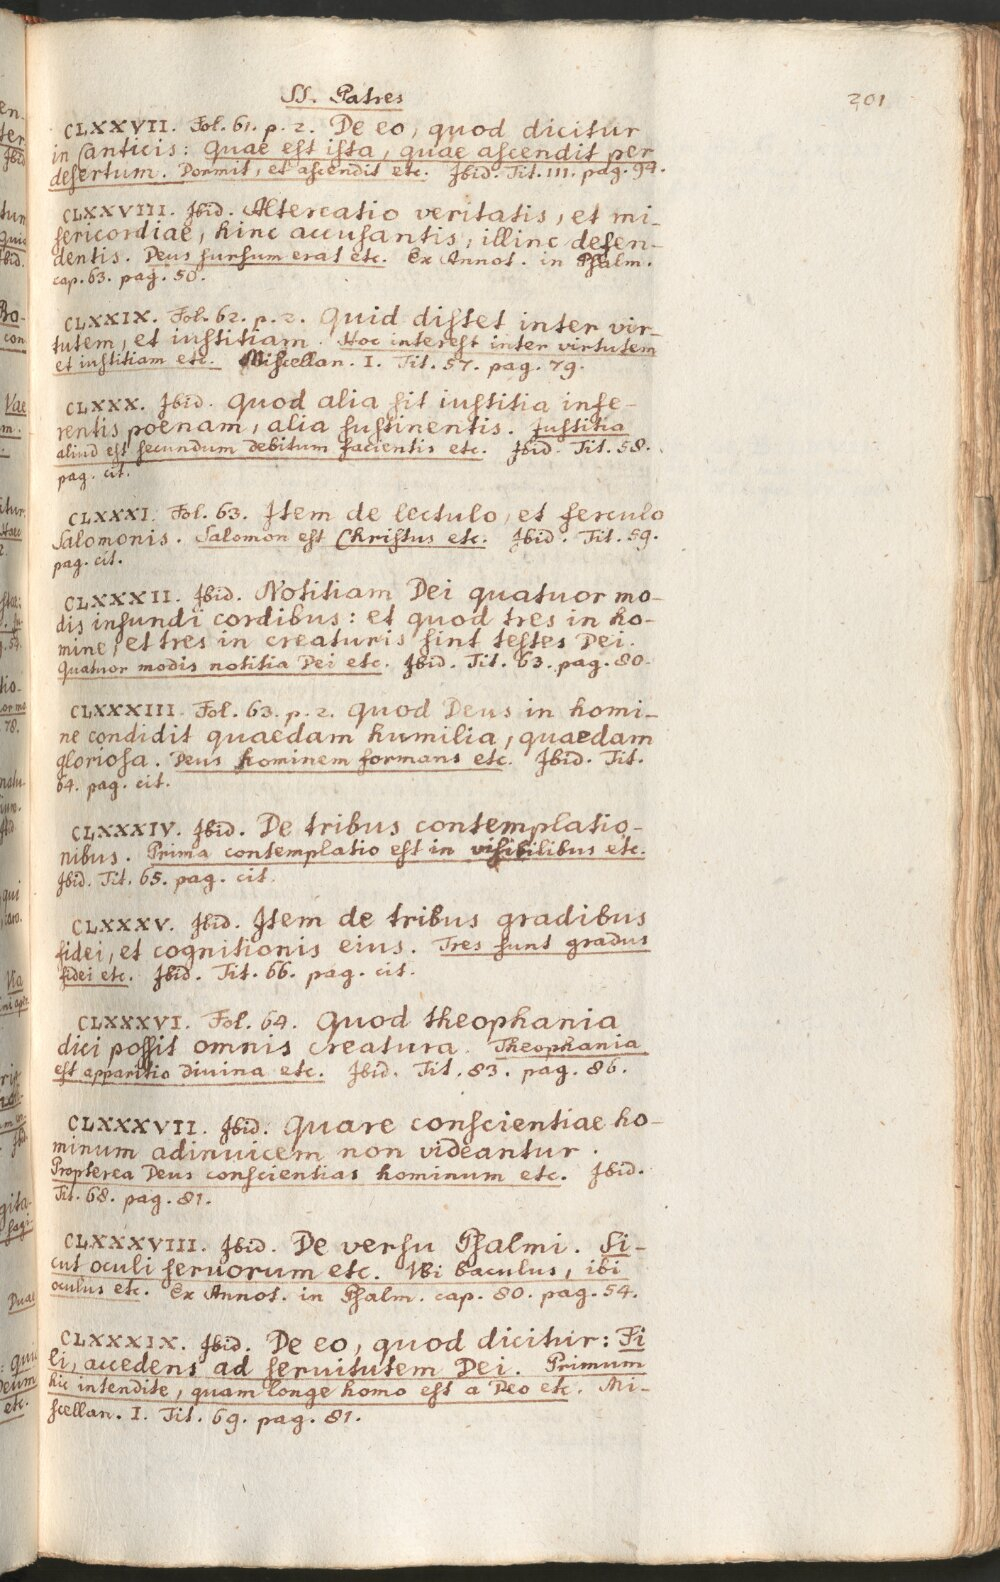 SS. Patres
201
CLXXVII. Fol. 61. p. 2. De eo, quod dicitur
in Canticis: Quae est ista, quae ascendit per
desertum. Dormit, et ascendit etc. Ibid. Tit. III. pag. 94.
CLXXVIII. Ibid. Altercatio veritatis, et mi-
sericordiae, hinc accusantis, illinc defen-
dentis. Deus sursum erat etc. Ex Annot. in Psalm.
cap. 63. pag. 50.
CLXXIX. Fol. 62. p. 2. Quid distet inter vir-
tutem, et iustitiam. Hoc interest inter virtutem
et iustitiam etc. Miscellan. I. Tit. 57. pag. 79.
CLXXX. Ibid. Quod alia sit iustitia infe-
rentis poenam, alia sustinentis. Justitia
aliud est secundum debitum facientis etc. Ibid. Tit. 58.
pag. cit.
CLXXXI. Fol. 63. Item de lectulo, et ferculo
Salomonis. Salomon est Christus etc. Ibid. Tit. 59.
pag. cit.
CLXXXII. Ibid. Notitiam Dei quatuor mo-
dis infundi cordibus: et quod tres in ho-
mine, et tres in creaturis sint testes Dei.
Quatuor modis notitia Dei etc. Ibid. Tit. 63. pag. 80.
CLXXXIII. Fol. 63. p. 2. Quod Deus in homi-
ne condidit quaedam humilia, quaedam
gloriosa. Deus hominem formans etc. Ibid. Tit.
64. pag. cit.
CLXXXIV. Ibid. De tribus contemplatio-
nibus. Prima contemplatio est in visibilibus etc.
Ibid. Tit. 65. pag. cit.
CLXXXV. Ibid. Item de tribus gradibus
fidei, et cognitionis eius. Tres sunt gradus
fidei etc. Ibid. Tit. 66. pag. cit.
CLXXXVI. Fol. 64. Quod theophania
dici possit omnis creatura. Theophania
est apparitio divina etc. Ibid. Tit. 83. pag. 86.
CLXXXVII. Ibid. Quare conscientiae ho-
minum adinuicem non videantur.
Propterea Deus conscientias hominum etc. Ibid.
Tit. 68. pag. 81.
CLXXXVIII. Ibid. De versu Psalmi. Si-
cut oculi servorum etc. Ubi baculus, ibi
oculus etc. Ex Annot. in Psalm. cap. 80. pag. 54.
CLXXXIX. Ibid. De eo, quod dicitur: Fi
li, accedens ad servitutem Dei. Primum
hic intendite, quam longe homo est a Deo etc. Mi-
scellan. I. Tit. 69. pag. 81.